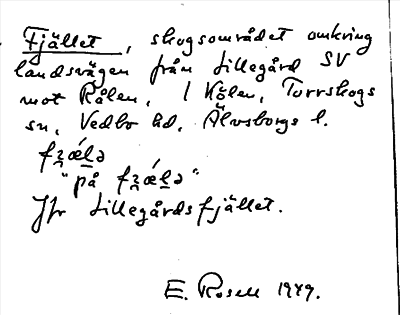 Fjället, skogsområdet omkring
landsvägen från Lillegård SV
mot Rålen, i Kölen, Torrskogs
sn, Vedbo hd, Älvsborgs l.
fʒǽlə
"på fʒǽlə"
Jfr Lillegårdsfjället.
E. Rosell 1949.